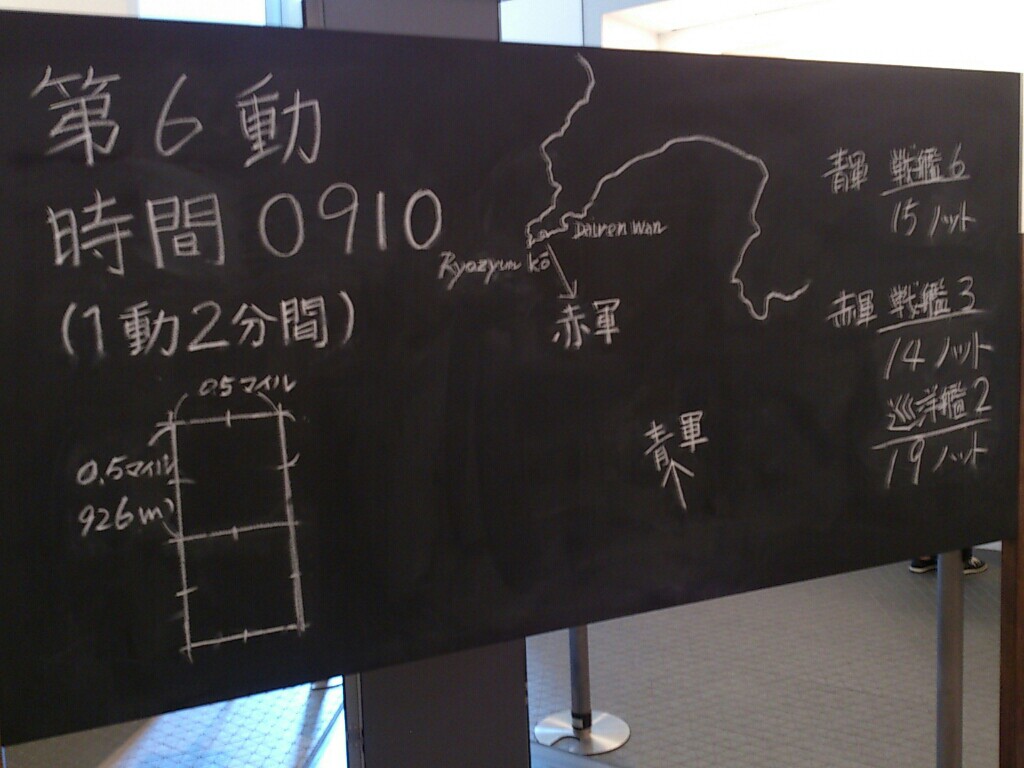 第6動
時間 0910
(1動2分間)
0.5マイル
0.5マイル
926m
Dairen Wan
Ryozyun kō
赤軍
青軍
青軍 戦艦6
15ノット
赤軍 戦艦3
14ノット
巡洋艦2
19ノット